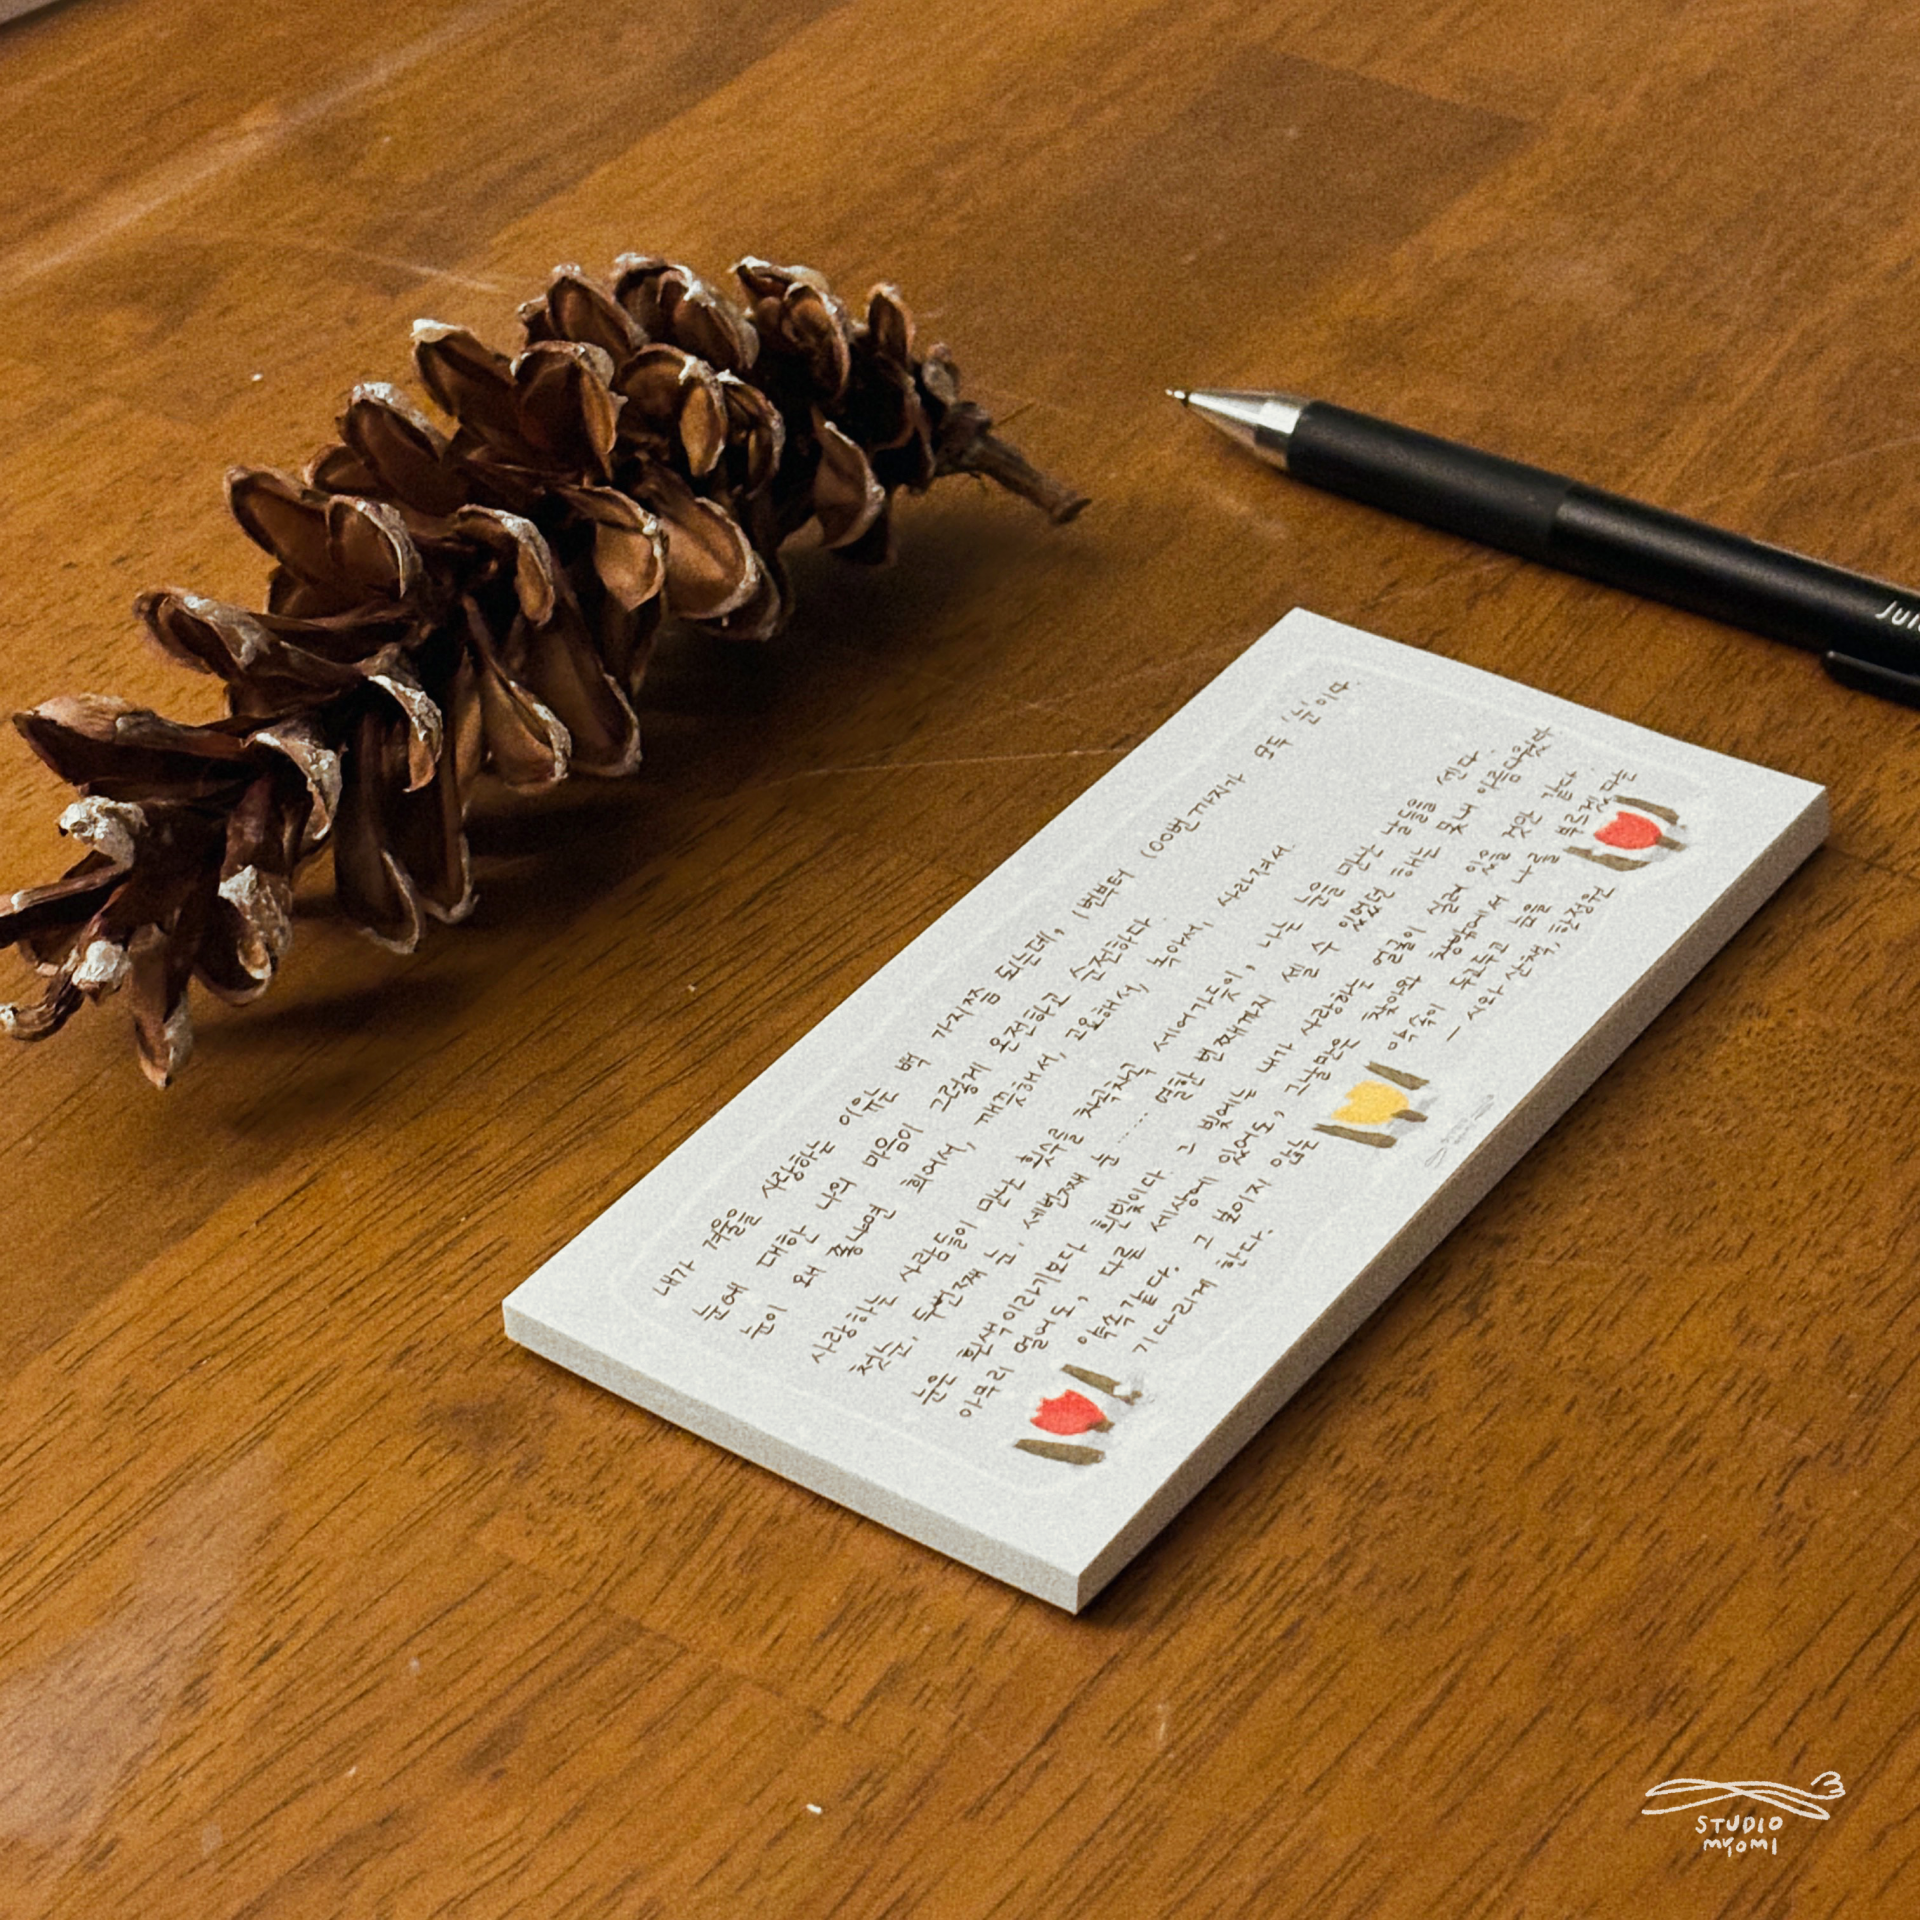 내가 겨울을 사랑하는 이유는 백 가지쯤 되는데, 1번부터 100번까지가 모두 '눈'이다.
눈에 대한 나의 마음이 그렇게 온전하고 순전하다.
눈이 왜 좋냐면 희어서, 깨끗해서, 고요해서, 녹아서, 사라져서.
사랑하는 사람들이 만난 횟수를 차곡차곡 세어가듯이, 나는 눈을 만난 날을 센다.
첫눈, 두번째 눈, 세번째 눈 …… 열한 번째까지 셀 수 있었던 해는 못내 아름다웠다.
눈은 흰색이라기보다 흰빛이다. 그 빛에는 내가 사랑하는 얼굴이 실려 있을 것만 같다.
아무리 멀어도, 다른 세상에 있어도, 그날만은 찾아와 창밖에서 나를 부르겠다는
약속같다. 그 보이지 않는 약속이 두고두고 눈을
기다리게 한다.
- 시와 산책, 한정원
Jui
STUDIO
myomi